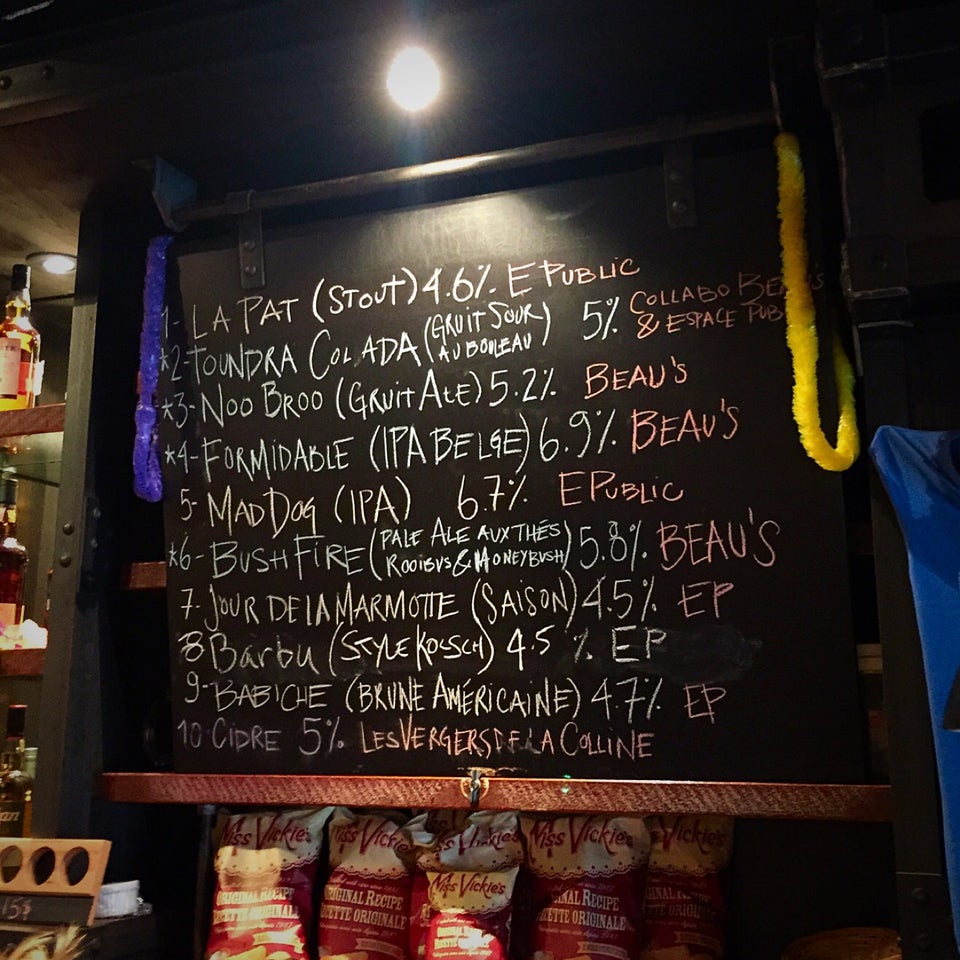 1- LA PAT (STOUT) 4.6% E PUBLIC
*2- TOUNDRA COLADA (GRUIT SOUR AU BOULEAU) 5% COLLABO BEAU'S & ESPACE PUB
*3- NOO BROO (GRUIT ALE) 5.2% BEAU'S
*4- FORMIDABLE (IPA BELGE) 6.9% BEAU'S
5- MAD DOG (IPA) 6.7% E PUBLIC
*6- BUSHFIRE (PALE ALE AUX THÉS ROOIBUS & HONEYBUSH) 5.8% BEAU'S
7- JOUR DE LA MARMOTTE (SAISON) 4.5% EP
8 Barbu (STYLE KOLSCH) 4.5 % EP
9- BABICHE (BRUNE AMÉRICAINE) 4.7% EP
10 CIDRE 5% LES VERGERS DE LA COLLINE
Miss Vickie's
ORIGINAL RECIPE
RECETTE ORIGINALE
Miss Vickie's
ORIGINAL RECIPE
RECETTE ORIGINALE
Miss Vickie's
Miss Vickie's
Miss Vickie's
ORIGINAL RECIPE
RECETTE ORIGINALE
Vickie's
15$